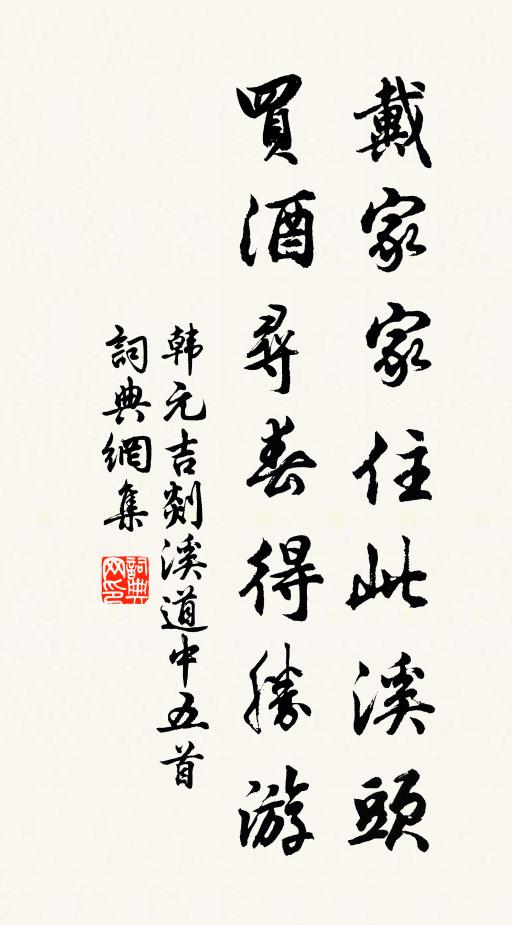 戴家家住此溪頭
買酒尋春得勝游
韩元吉剡溪道中五首
詞典網集
詞典网印